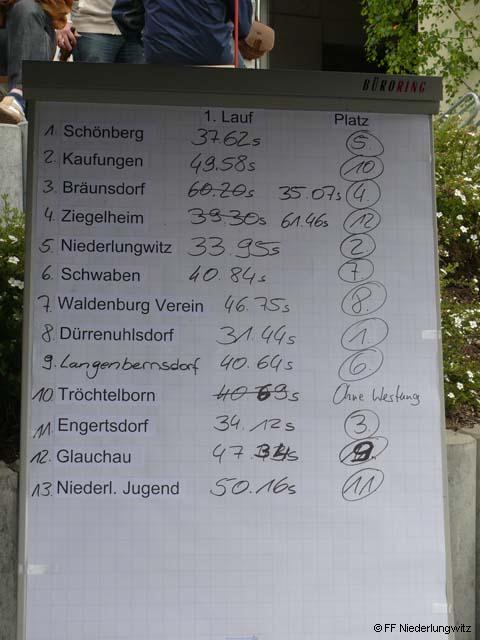 BÜRORING
1. Lauf Platz
1. Schönberg 37.62s 5.
2. Kaufungen 49.58s 10
3. Bräunsdorf 60.20s 35.07s 4.
4. Ziegelheim 39.30s 61.46s 12
5. Niederlungwitz 33.95s 2.
6. Schwaben 40.84s 7.
7. Waldenburg Verein 46.75s 8.
8. Dürrenuhlsdorf 31.44s 1.
9. Langenbernsdorf 40.64s 6.
10. Tröchtelborn 40.69s Ohne Wertung
11. Engertsdorf 34.12s 3.
12. Glauchau 47.34s 9.
13. Niederl. Jugend 50.16s 11
© FF Niederlungwitz